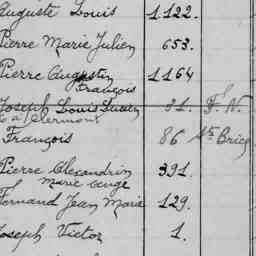 Auguste Louis 1.122.
Pierre Marie Julien 653.
Pierre Augustin 1164
François
Joseph Louis 31. F. N.
à Clermont
François 86 Ste Brice
Pierre Alexandrin 391.
Marie Ange
Fernand Jean Marie 129.
Joseph Victor 1.